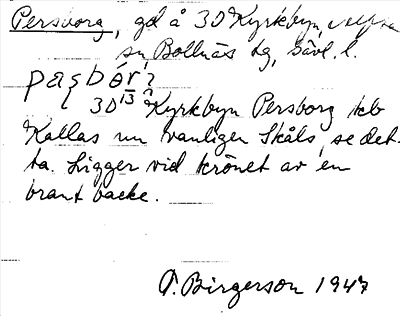 Persborg, gd å 3D Kyrkbyn,
sn, Bollnäs tg, Gävl. l.
3D 13 Kyrkbyn Persborg kb
Kallas nu vanligen Skåls, se det-
ta. Ligger vid krönet av en
brant backe.
P. Birgerson 1947